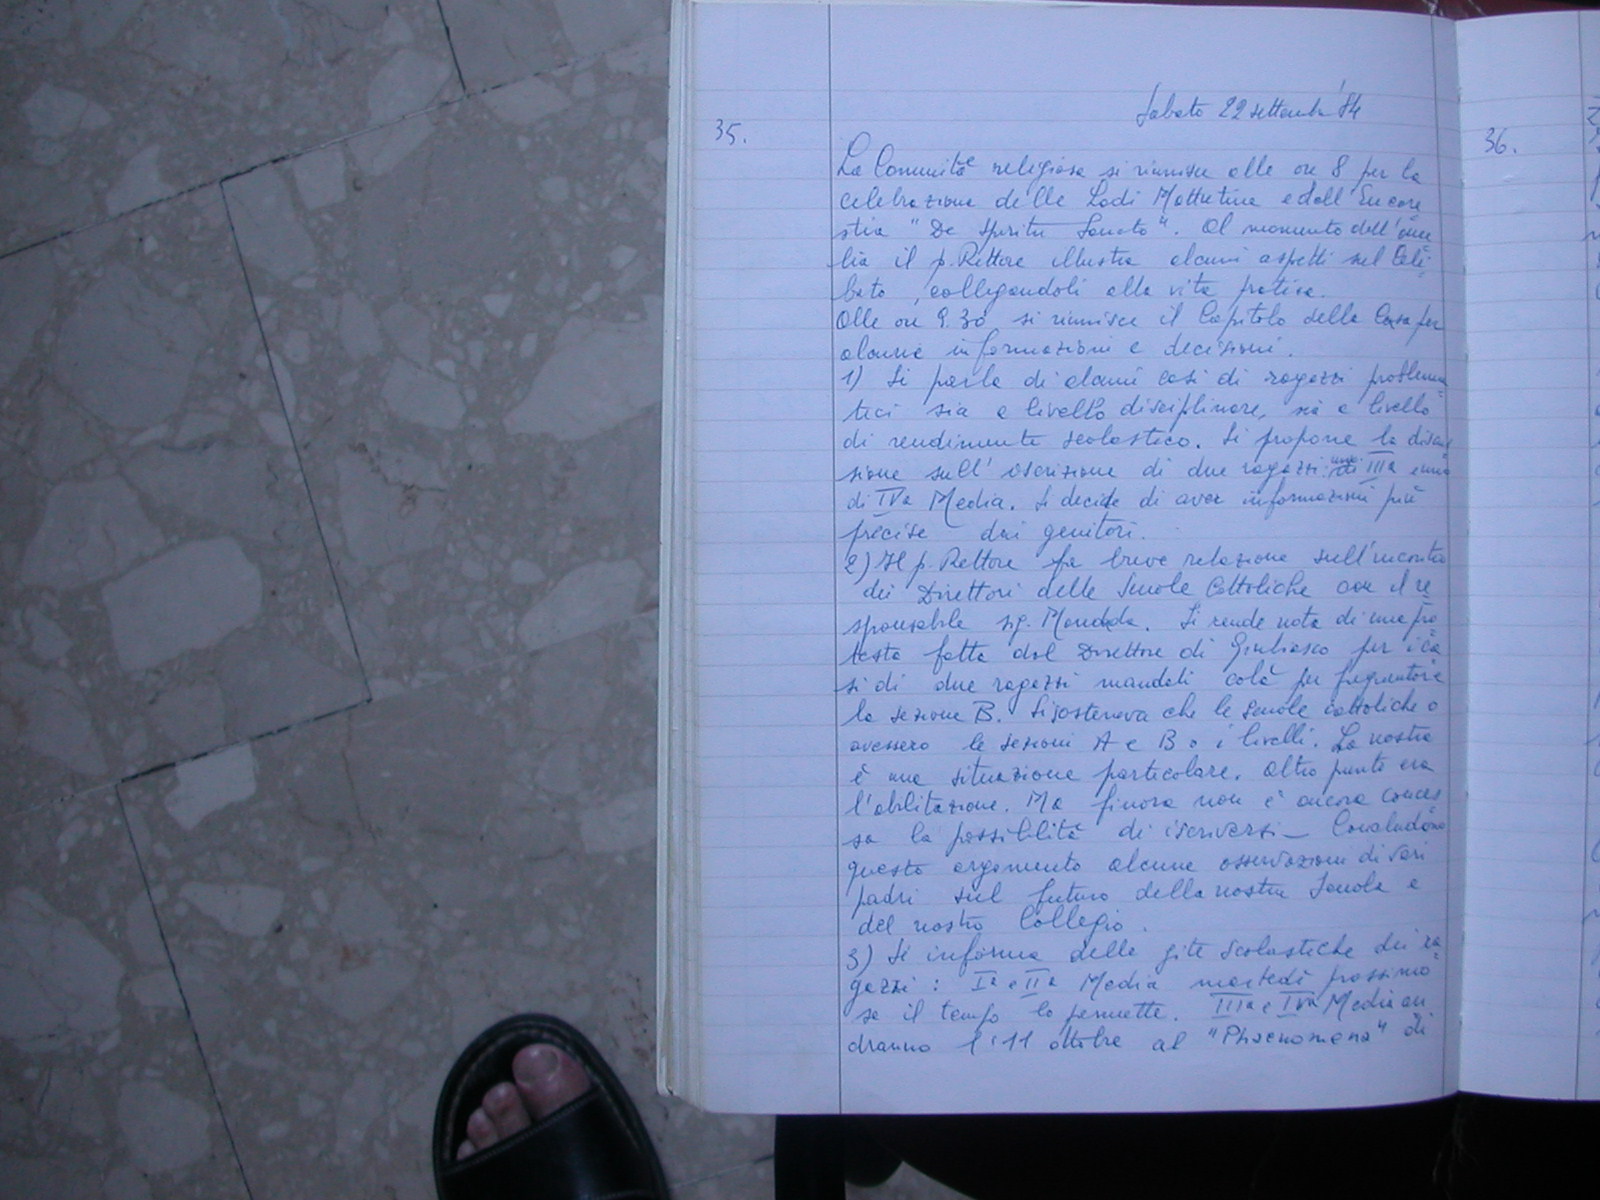 Sabato 22 settembre '84
35.
La Comunità religiosa si riunisce alle ore 8 per la
celebrazione delle Lodi Mattutine e dell'Eucare
stia "De Spiritu Sancto". Al momento dell'ome
lia il p. Rettore illustra alcuni aspetti sul Celi
bato, collegandoli alla vita pratica.
Alle ore 9.30 si riunisce il Capitolo della Casa per
alcune informazioni e decisioni.
1) Si parla di alcuni casi di ragazzi problema
tici sia a livello disciplinare, sia a livello
di rendimento scolastico. Si propone la discus
sione sull'iscrizione di due ragazzi: uno di IIIa e uno
di IVa Media. Si decide di aver informazioni più
precise dai genitori.
2) Il p. Rettore fa breve relazione sull'incontro
dei Direttori delle Scuole Cattoliche con il re
sponsabile sig. Mondada. Si rende nota di una pro
testa fatta dal Direttore di Giubiasco per i ca
si di due ragazzi mandati colà per frequentare
la sezione B. Si sosteneva che le scuole cattoliche o
avessero le sezioni A e B o i livelli. La nostra
è una situazione particolare. Altro punto era
l'abilitazione. Ma finora non è ancora conces
sa la possibilità di iscriversi – Concludono
questo argomento alcune osservazioni di vari
padri sul futuro della nostra Scuola e
del nostro Collegio.
3) Si informa delle gite scolastiche dei ra
gazzi: Ia e IIa Media martedì prossimo
se il tempo lo permette. IIIa e IVa Media an
dranno l'11 ottobre al "Phaenomena" di
36.